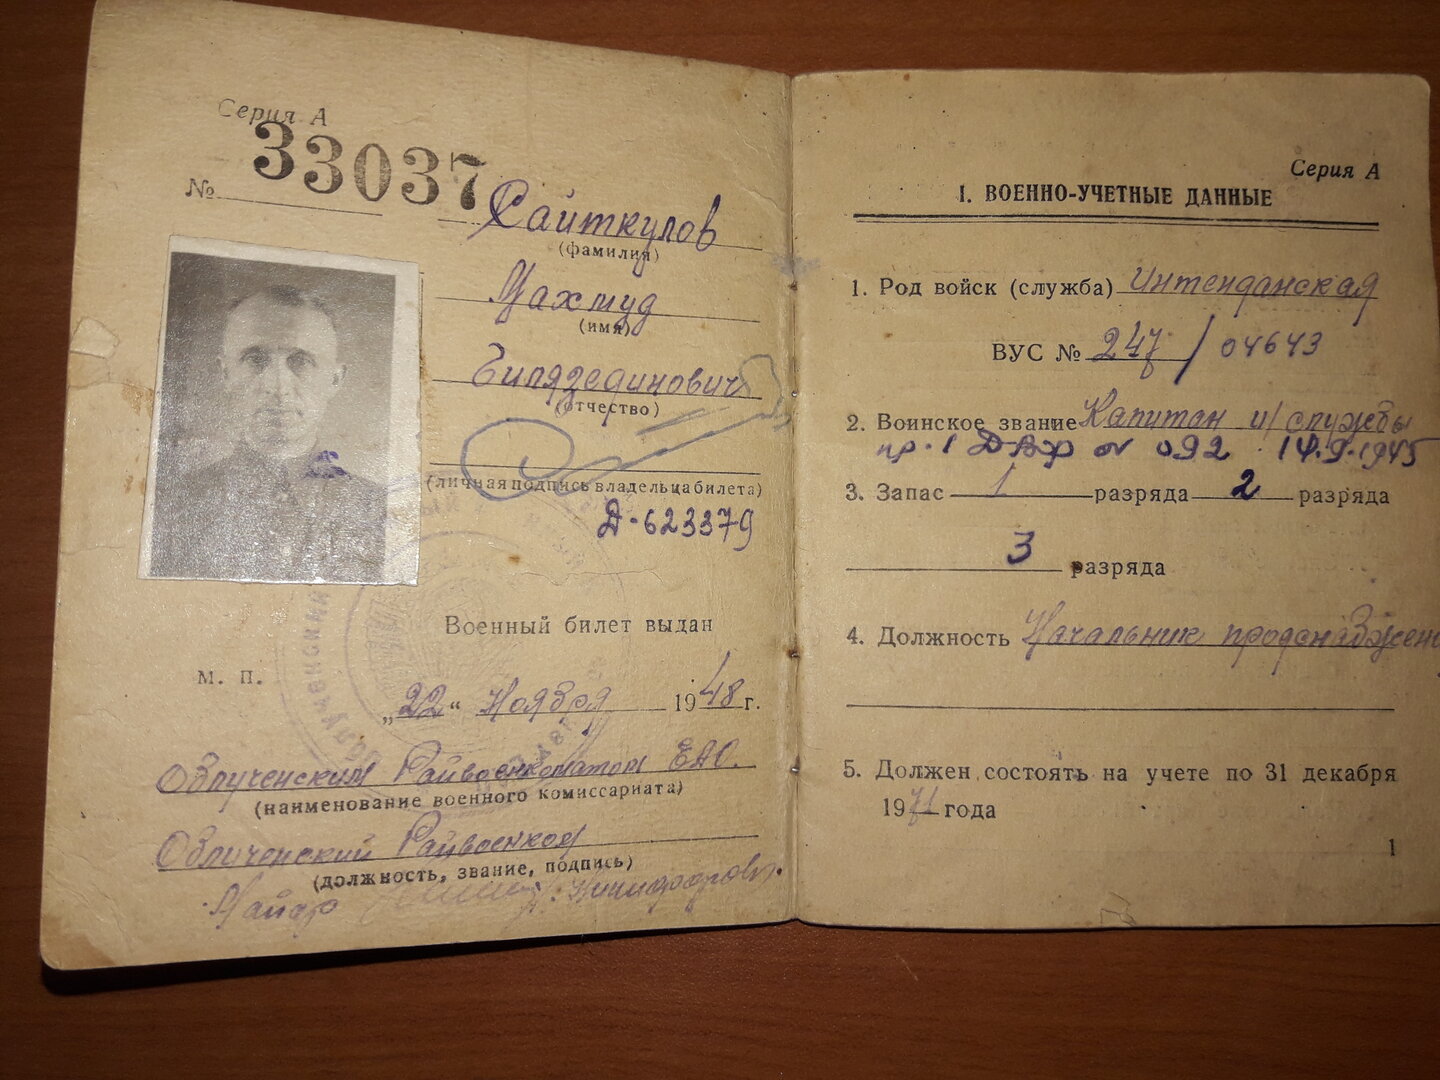 Серия А
№ 33037
Саиткулов
(фамилия)
Махмуд
(имя)
(отчество)
(личная подпись владельца билета)
Д-623379
Военный билет выдан
М. П.
„22“ Ноября 1948 г.
Облученским Райвоенкоматом ЕАО.
(наименование военного комиссариата)
Облученский Райвоенком
(должность, звание, подпись)
Майор
Серия А
I. ВОЕННО-УЧЕТНЫЕ ДАННЫЕ
1. Род войск (служба) Интенданская
ВУС № 247 / 04643
2. Воинское звание Капитан и/службы
пр. 1 ДВФ № 092 14.9.1945
3. Запас 1 разряда 2 разряда
3 разряда
4. Должность Начальник продснабжени
5. Должен состоять на учете по 31 декабря
1971 года
1